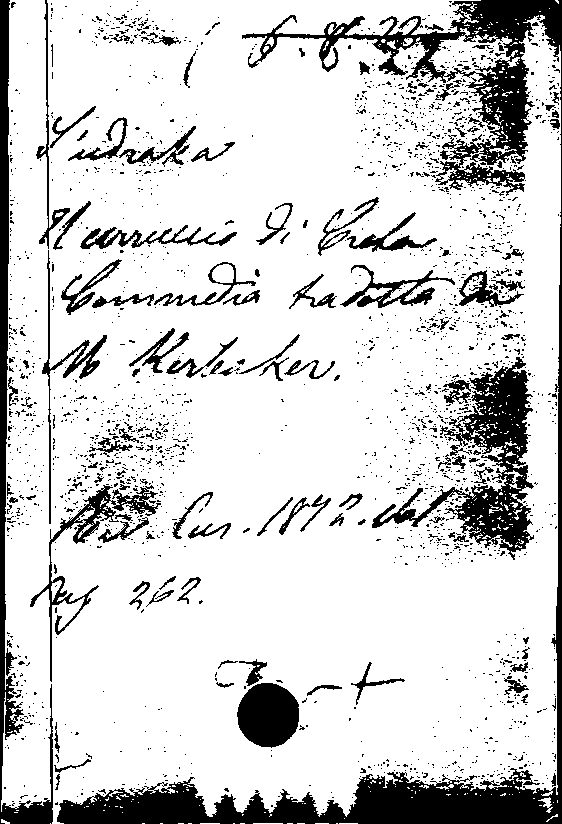 ( 6. 8. 22
Sudraka
Il carruccio di Creta.
Commedia tradotta da
M Kerbaker.
Riv. Eur. 1872. vol
pag 262.